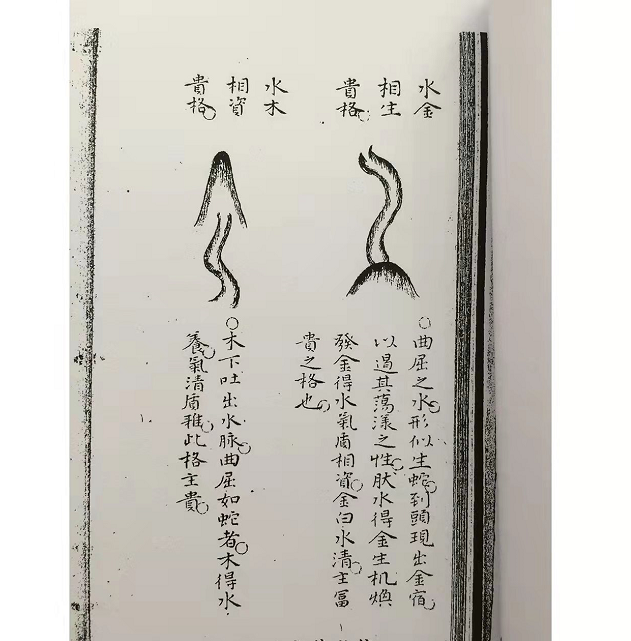 水金
相生
貴格
曲屈之水形似生蛇到頭現出金宿
以遏其蕩漾之性肰水得金生机煥
發金得水氣盾相資金白水清主冨
貴之格也
水木
相資
貴格
木下吐出水脉曲屈如蛇者木得水
養氣清盾稚此格主貴